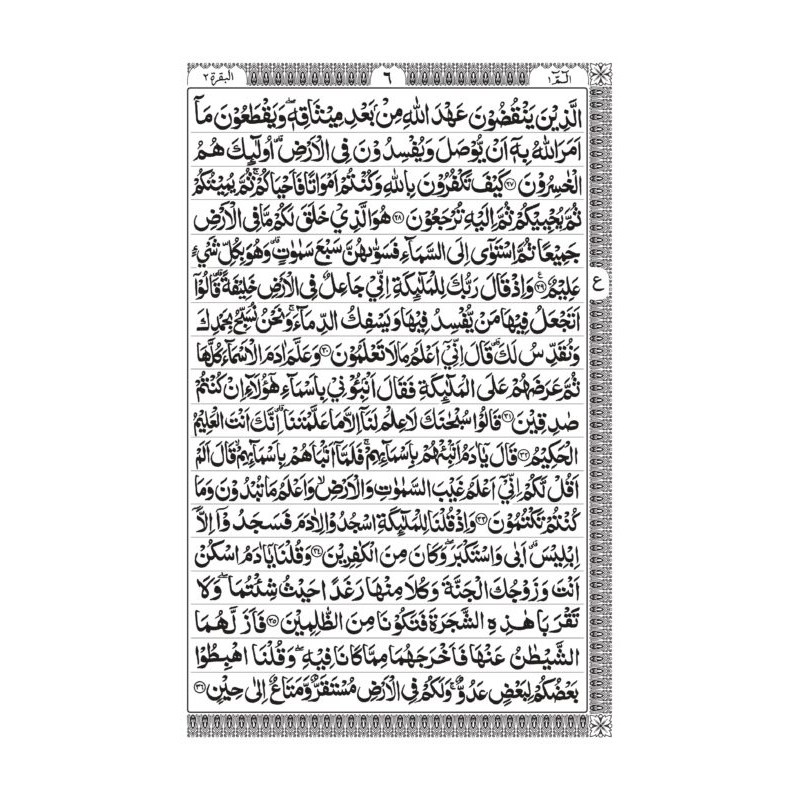 الٓمّٓ ١ ٦ البقرة ٢
الَّذِيْنَ يَنْقُضُوْنَ عَهْدَ اللّٰهِ مِنْۢ بَعْدِ مِيْثَاقِهٖ ۪ وَيَقْطَعُوْنَ مَآ
اَمَرَ اللّٰهُ بِهٖٓ اَنْ يُّوْصَلَ وَيُفْسِدُوْنَ فِي الْاَرْضِ ؕ اُولٰٓئِكَ هُمُ
الْخٰسِرُوْنَ ۝۲۷ كَيْفَ تَكْفُرُوْنَ بِاللّٰهِ وَكُنْتُمْ اَمْوَاتًا فَاَحْيَاكُمْ ۚ ثُمَّ يُمِيْتُكُمْ
ثُمَّ يُحْيِيْكُمْ ثُمَّ اِلَيْهِ تُرْجَعُوْنَ ۝۲۸ هُوَ الَّذِيْ خَلَقَ لَكُمْ مَّا فِي الْاَرْضِ
جَمِيْعًا ثُمَّ اسْتَوٰٓى اِلَى السَّمَآءِ فَسَوّٰىهُنَّ سَبْعَ سَمٰوٰتٍ ؕ وَهُوَ بِكُلِّ شَيْءٍ
عَلِيْمٌ ۝۲۹ وَاِذْ قَالَ رَبُّكَ لِلْمَلٰٓئِكَةِ اِنِّيْ جَاعِلٌ فِي الْاَرْضِ خَلِيْفَةً ؕ قَالُوْٓا
ع
اَتَجْعَلُ فِيْهَا مَنْ يُّفْسِدُ فِيْهَا وَيَسْفِكُ الدِّمَآءَ ۚ وَنَحْنُ نُسَبِّحُ بِحَمْدِكَ
وَنُقَدِّسُ لَكَ ؕ قَالَ اِنِّيْٓ اَعْلَمُ مَا لَا تَعْلَمُوْنَ ۝۳۰ وَعَلَّمَ اٰدَمَ الْاَسْمَآءَ كُلَّهَا
ثُمَّ عَرَضَهُمْ عَلَى الْمَلٰٓئِكَةِ فَقَالَ اَنْۢبِـُٔوْنِيْ بِاَسْمَآءِ هٰٓؤُلَآءِ اِنْ كُنْتُمْ
صٰدِقِيْنَ ۝۳۱ قَالُوْا سُبْحٰنَكَ لَا عِلْمَ لَنَآ اِلَّا مَا عَلَّمْتَنَا ؕ اِنَّكَ اَنْتَ الْعَلِيْمُ
الْحَكِيْمُ ۝۳۲ قَالَ يٰٓاٰدَمُ اَنْۢبِئْهُمْ بِاَسْمَآئِهِمْ ۚ فَلَمَّآ اَنْۢبَاَهُمْ بِاَسْمَآئِهِمْ ۙ قَالَ اَلَمْ
اَقُلْ لَّكُمْ اِنِّيْٓ اَعْلَمُ غَيْبَ السَّمٰوٰتِ وَالْاَرْضِ ۙ وَاَعْلَمُ مَا تُبْدُوْنَ وَمَا
كُنْتُمْ تَكْتُمُوْنَ ۝۳۳ وَاِذْ قُلْنَا لِلْمَلٰٓئِكَةِ اسْجُدُوْا لِاٰدَمَ فَسَجَدُوْٓا اِلَّآ
اِبْلِيْسَ ؕ اَبٰى وَاسْتَكْبَرَ ۫ وَكَانَ مِنَ الْكٰفِرِيْنَ ۝۳۴ وَقُلْنَا يٰٓاٰدَمُ اسْكُنْ
اَنْتَ وَزَوْجُكَ الْجَنَّةَ وَكُلَا مِنْهَا رَغَدًا حَيْثُ شِئْتُمَا ۪ وَلَا
تَقْرَبَا هٰذِهِ الشَّجَرَةَ فَتَكُوْنَا مِنَ الظّٰلِمِيْنَ ۝۳۵ فَاَزَلَّهُمَا
الشَّيْطٰنُ عَنْهَا فَاَخْرَجَهُمَا مِمَّا كَانَا فِيْهِ ۪ وَقُلْنَا اهْبِطُوْا
بَعْضُكُمْ لِبَعْضٍ عَدُوٌّ ۚ وَلَكُمْ فِي الْاَرْضِ مُسْتَقَرٌّ وَّمَتَاعٌ اِلٰى حِيْنٍ ۝۳۶